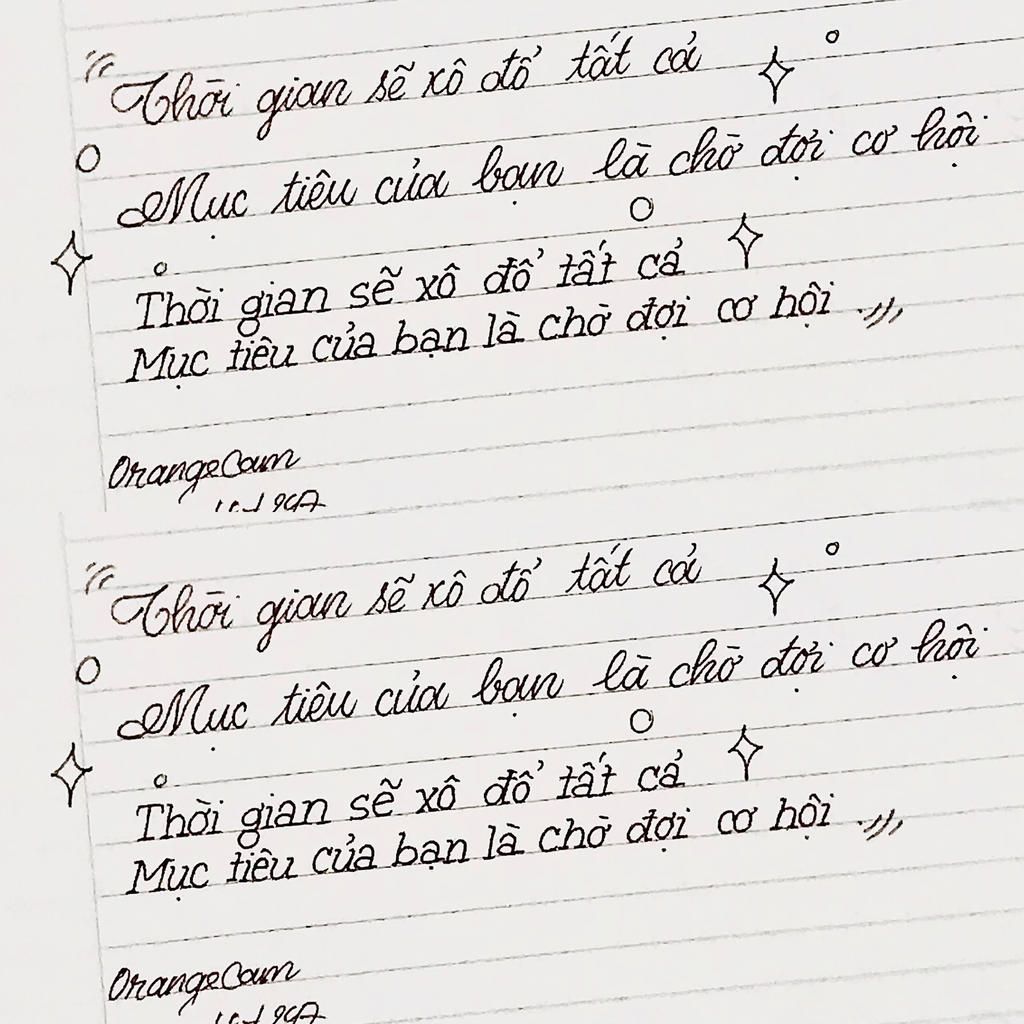 "Thời gian sẽ xô đổ tất cả
Mục tiêu của bạn là chờ đợi cơ hội
Thời gian sẽ xô đổ tất cả
Mục tiêu của bạn là chờ đợi cơ hội."
OrangeCam
"Thời gian sẽ xô đổ tất cả
Mục tiêu của bạn là chờ đợi cơ hội
Thời gian sẽ xô đổ tất cả
Mục tiêu của bạn là chờ đợi cơ hội."
OrangeCam